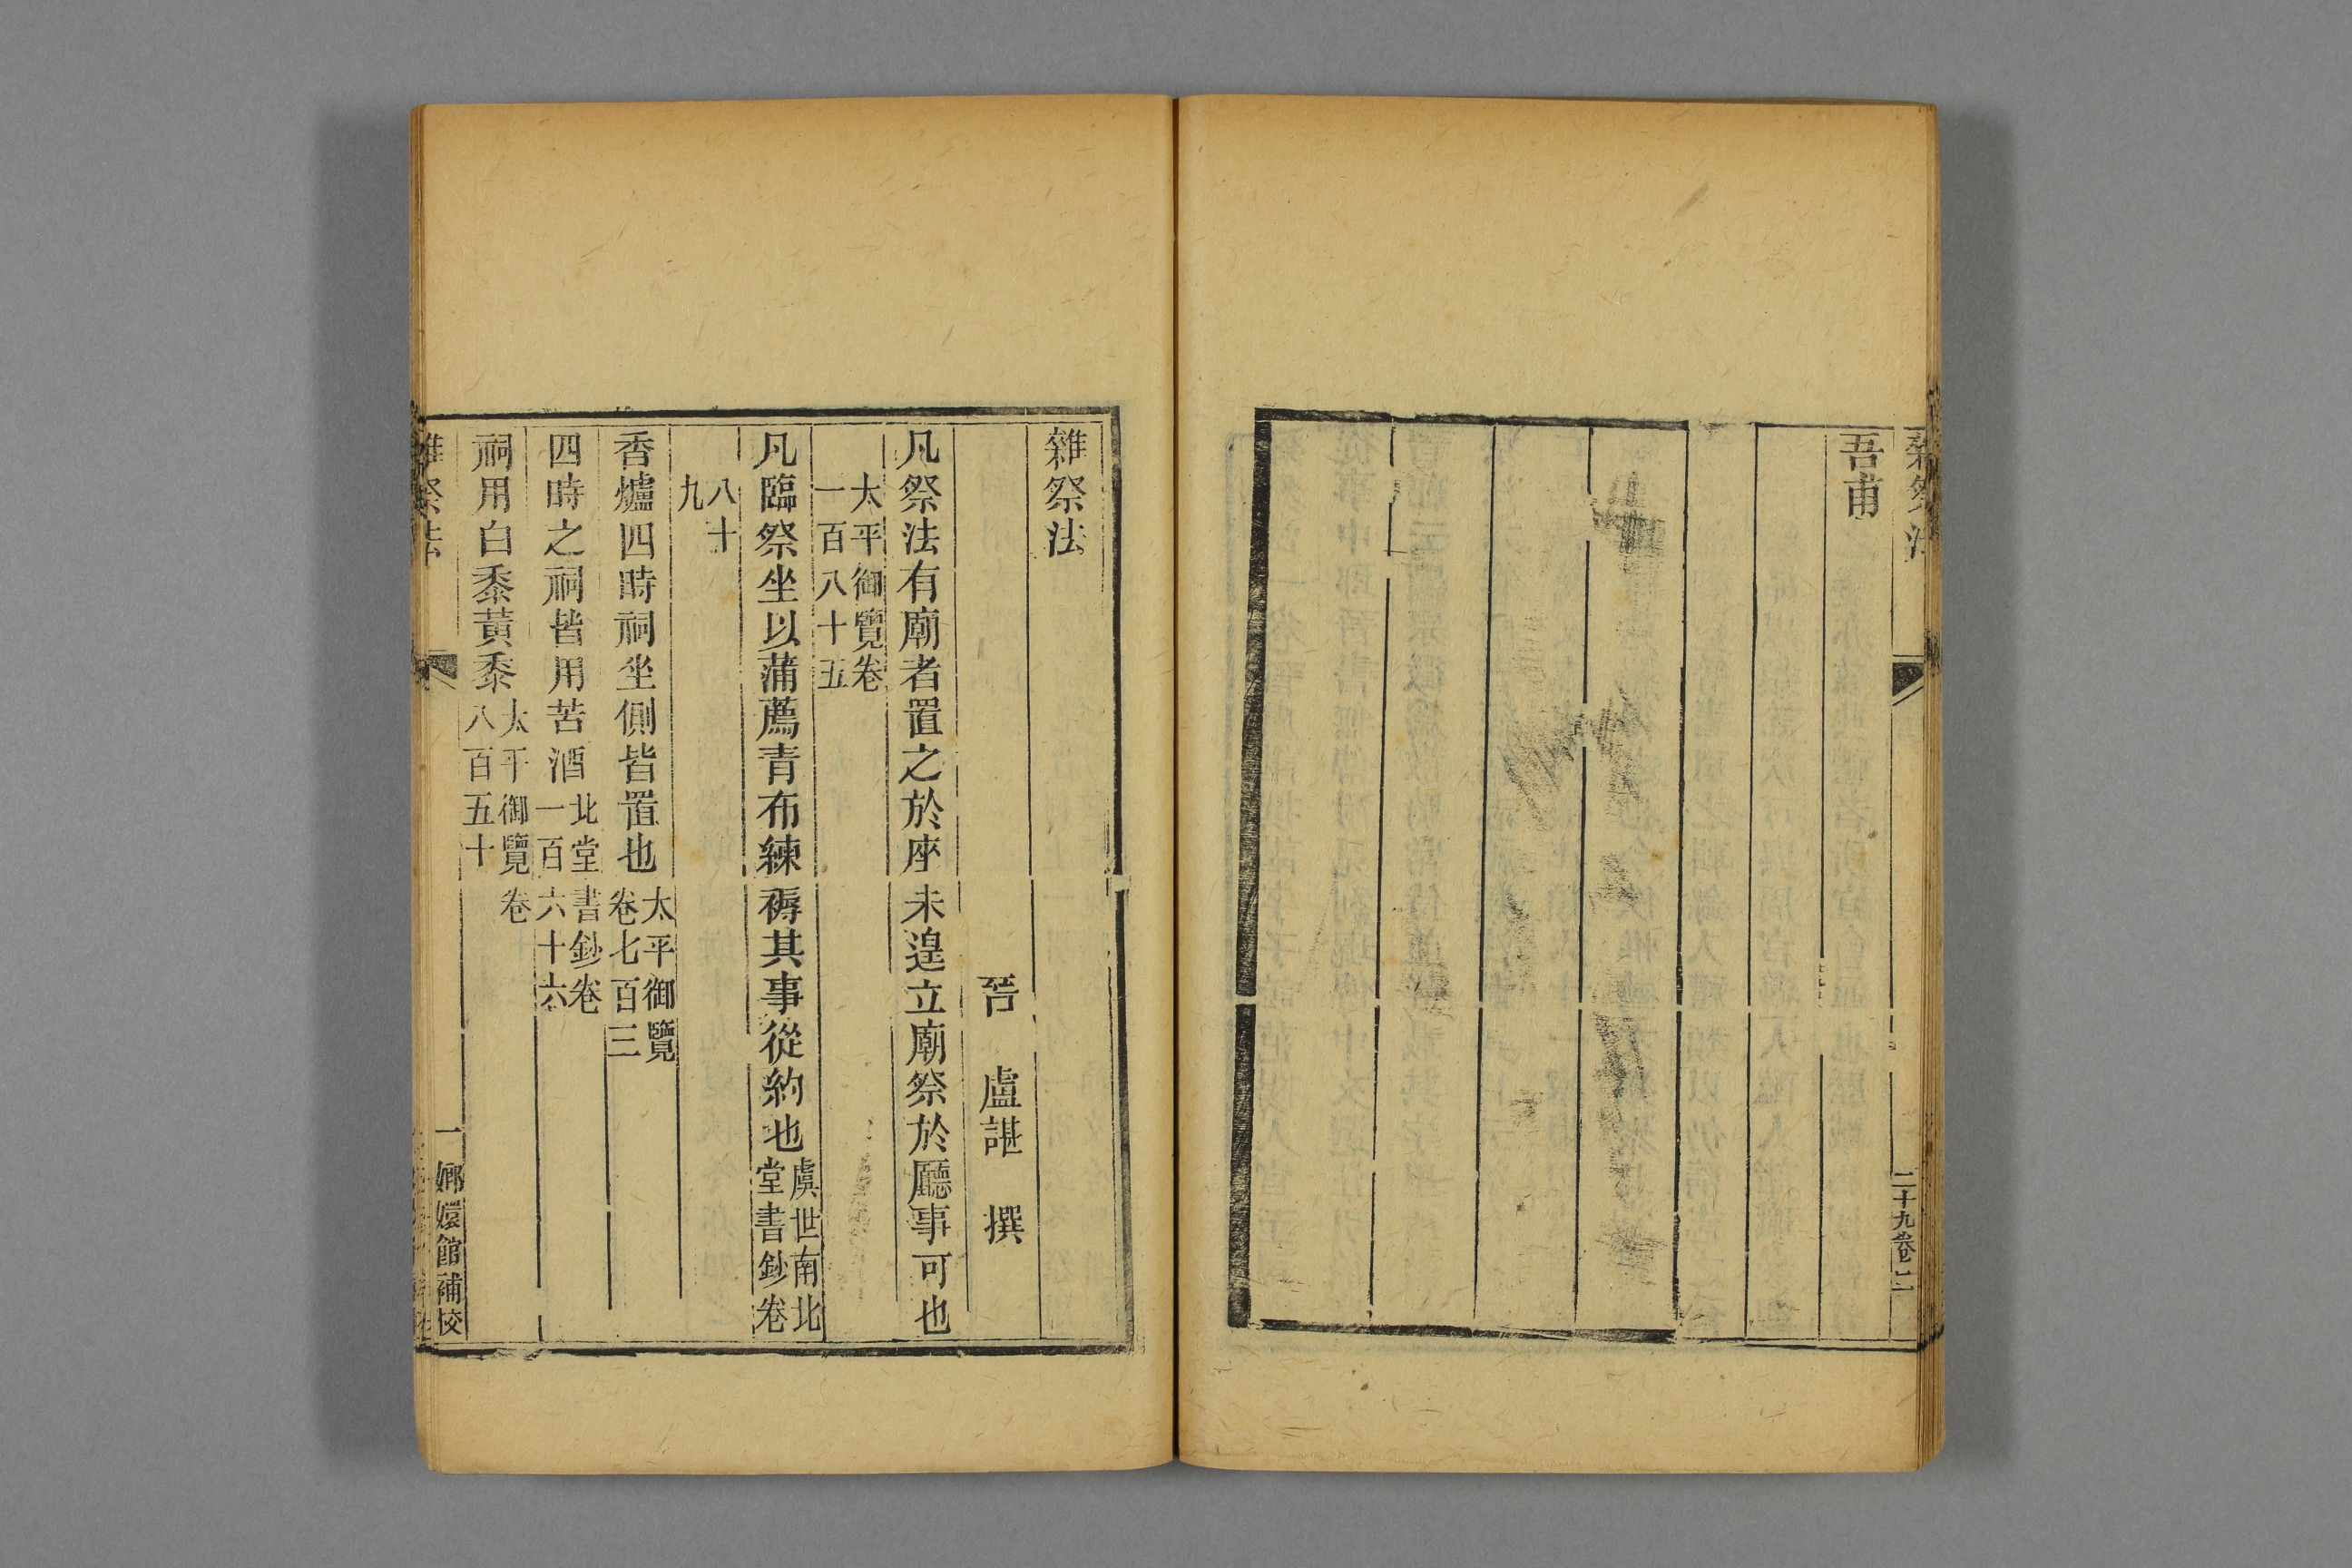 雜祭法
二十九卷二
吾甫
雜祭法
晉 盧諶 撰
凡祭法有廟者置之於座未遑立廟祭於廳事可也
太平御覽卷
一百八十五
凡臨祭坐以蒲薦青布練褥其事從約也虞世南北
堂書鈔卷
八十
九
香爐四時祠坐側皆置也太平御覽
卷七百三
四時之祠皆用苦酒北堂書鈔卷
一百六十六
祠用白黍黃黍太平御覽卷
八百五十
雜祭法
一
嫏嬛館補校